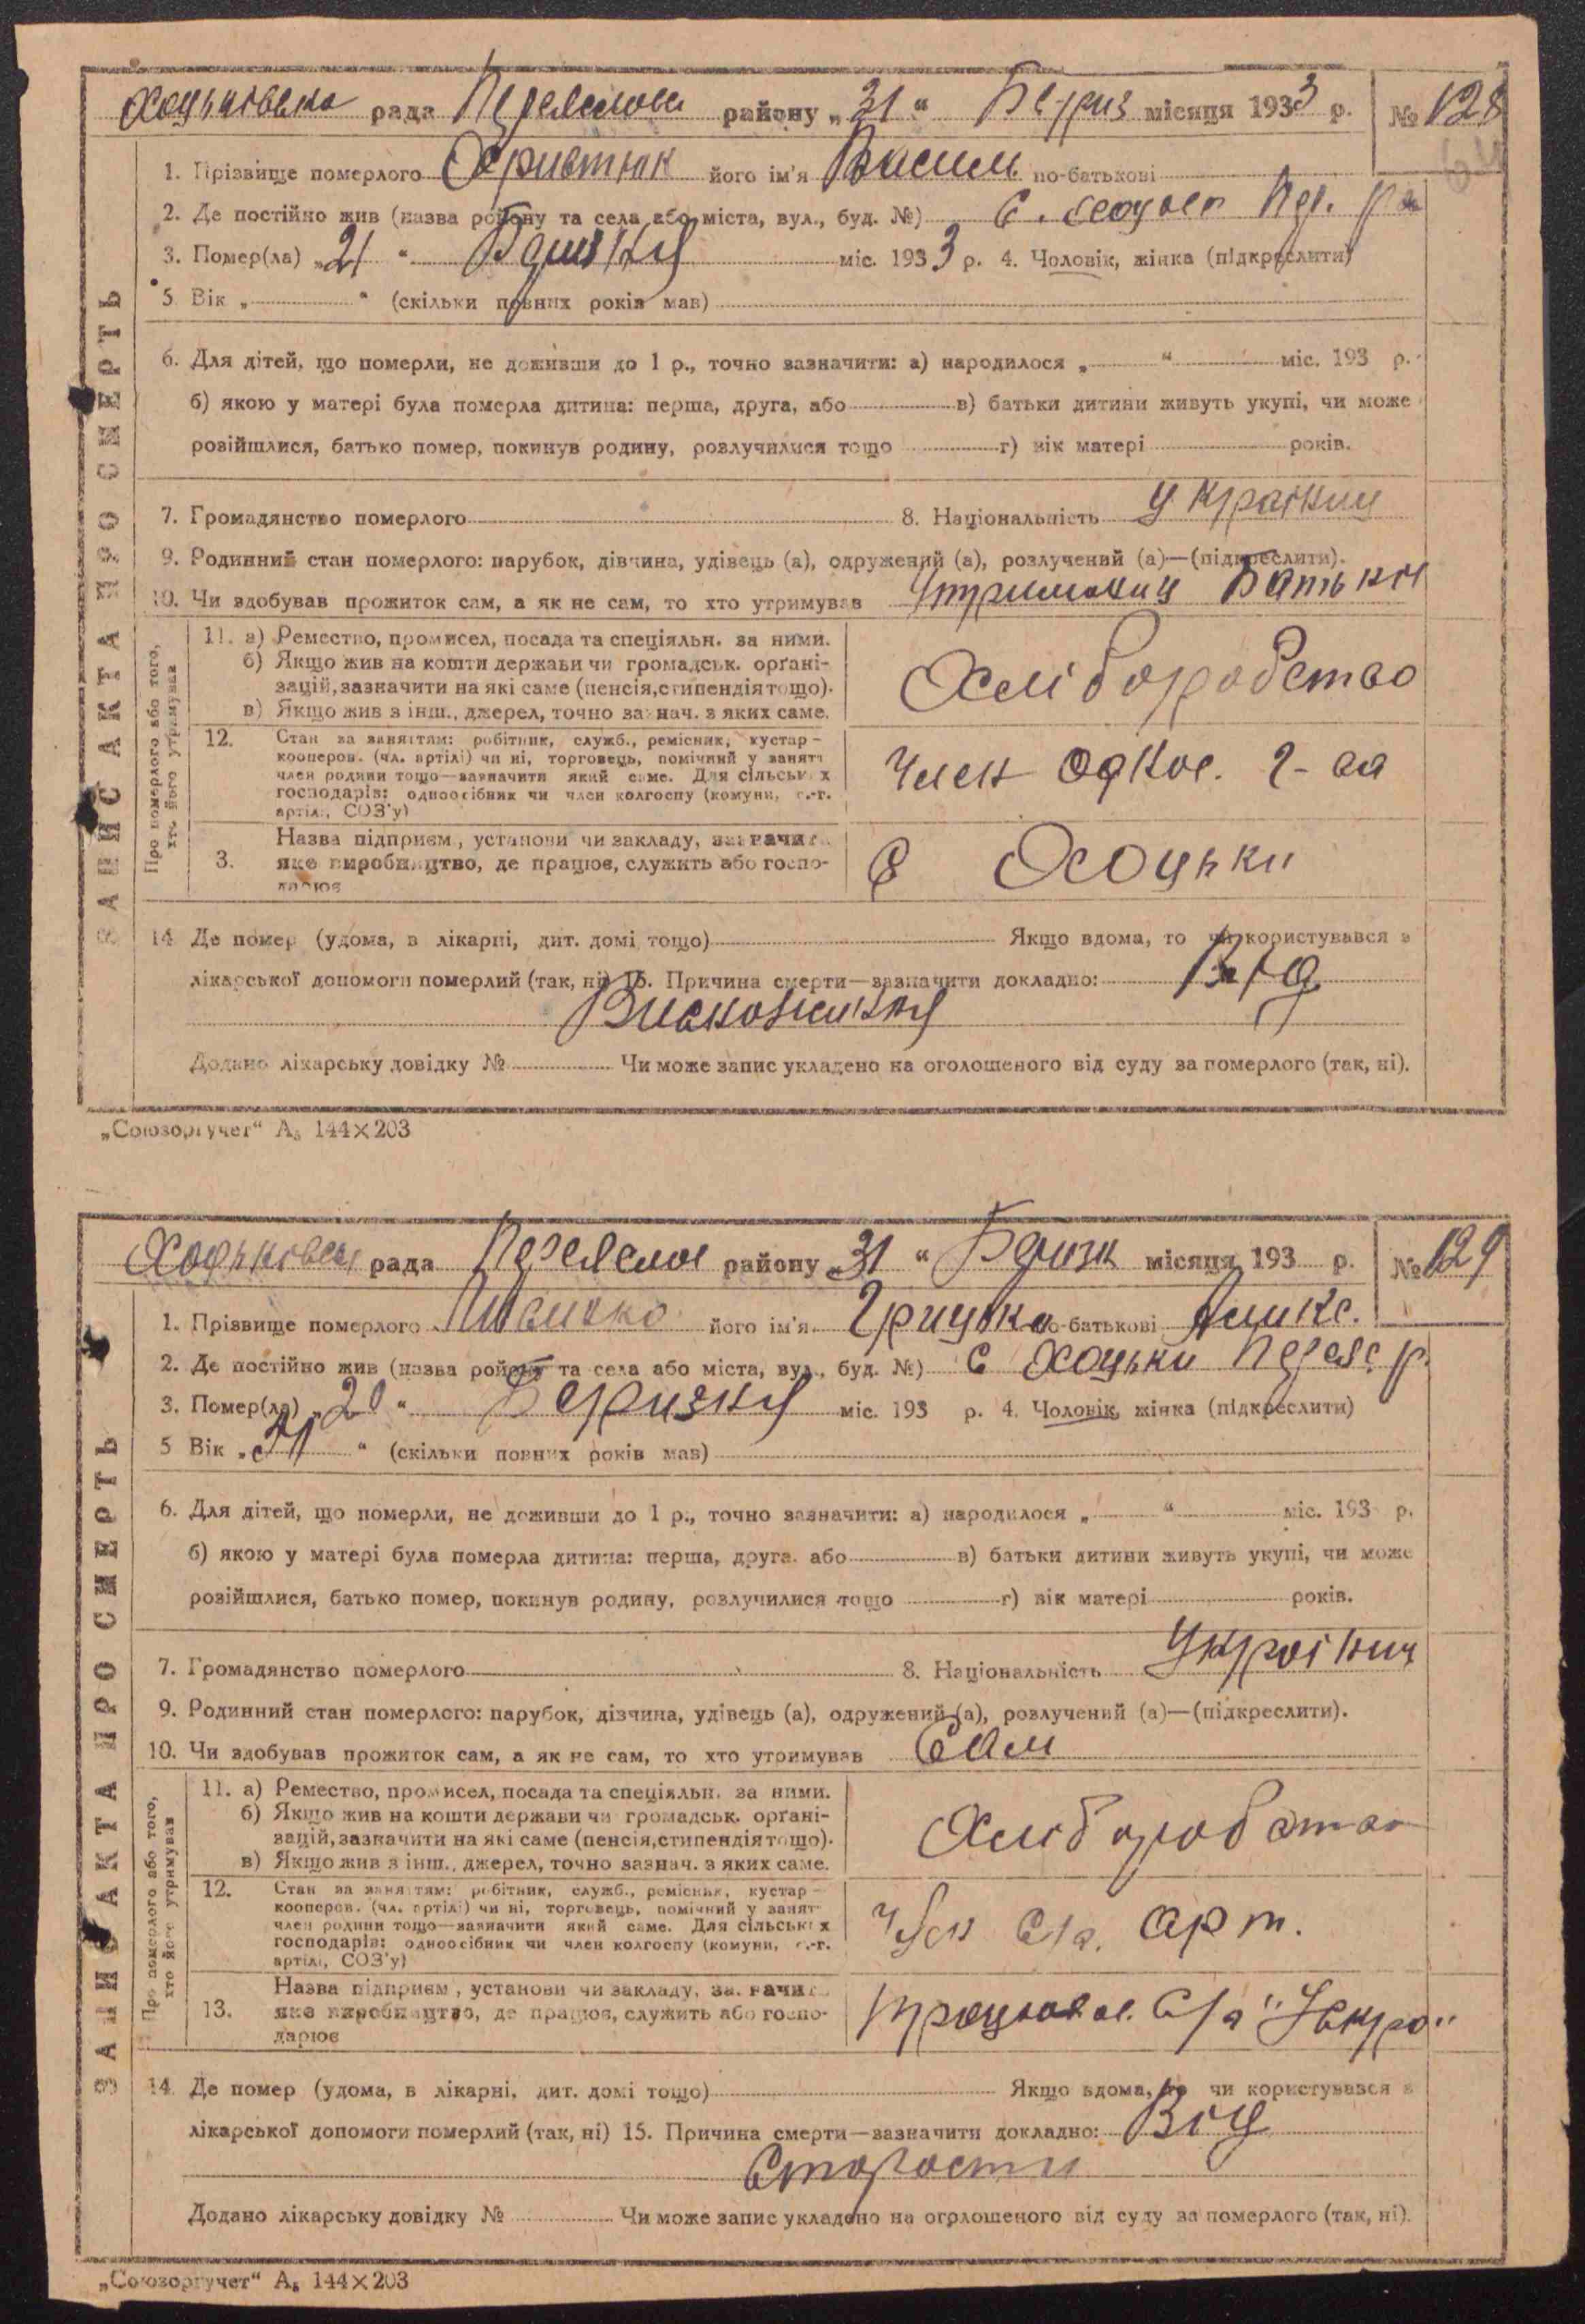 Хоцьківська рада Переяслов району „31“ Березня місяця 1933 р. № 128
64
1. Прізвище померлого Христюк його ім'я Василь по-батькові
2. Де постійно жив (назва ройону та села або міста, вул., буд. №) С. Пер. р
3. Помер(ла) „21“ міс. 1933 р. 4. Чоловік, жінка (підкреслити)
5 Вік „ “ (скільки повних років мав)
6. Для дітей, що померли, не доживши до 1 р., точно зазначити: а) народилося „ “ міс. 193 р.
б) якою у матері була померла дитина: перша, друга, або в) батьки дитини живуть укупі, чи може
розійшлися, батько помер, покинув родину, розлучилися тощо г) вік матері років.
7. Громадянство померлого 8. Національність Українец
9. Родинний стан померлого: парубок, дівчина, удівець (а), одружений (а), розлучений (а)—(підкреслити).
10. Чи здобував прожиток сам, а як не сам, то хто утримував Батьки
11. а) Ремество, промисел, посада та спеціяльн. за ними.
б) Якщо жив на кошти держави чи громадськ. орґані-
зацій, зазначити на які саме (пенсія, стипендія тощо).
в) Якщо жив з інш., джерел, точно зазнач. з яких саме.
Хліборобство
12. Стан за заняттям: робітник, служб., ремісник, кустар—
кооперов. (чл. артілі) чи ні, торговець, помічний у занятт
член родини тощо—зазначити який саме. Для сільських
господарів: одноосібник чи член колгоспу (комуни, с.-г.
артілі, СОЗ'у)
Член г-ва
3. Назва підприєм., установи чи закладу, зазначит
яке виробництво, де працює, служить або госпо-
дарює
С Хоцьки
14 Де помер (удома, в лікарні, дит. домі тощо) Якщо вдома, то чи користувався з
лікарської допомоги померлий (так, ні) 15. Причина смерти—зазначити докладно: Від
Виснаження
Додано лікарську довідку № Чи може запис укладено на оголошеного від суду за померлого (так, ні).
ЗАПИС АКТА ПРО СМЕРТЬ
Про померлого або того,
хто його утримував
„Союзоргучет“ А₅ 144×203
Хоцьківська рада Переяслов району „31“ Березня місяця 193 р. № 129
1. Прізвище померлого його ім'я Грицько по-батькові
2. Де постійно жив (назва ройону та села або міста, вул., буд. №) С Хоцьки Переяс. р.
3. Помер(ла) „20“ Березня міс. 193 р. 4. Чоловік, жінка (підкреслити)
5 Вік „ “ (скільки повних років мав)
6. Для дітей, що померли, не доживши до 1 р., точно зазначити: а) народилося „ “ міс. 193 р.
б) якою у матері була померла дитина: перша, друга, або в) батьки дитини живуть укупі, чи може
розійшлися, батько помер, покинув родину, розлучилися тощо г) вік матері років.
7. Громадянство померлого 8. Національність Українец
9. Родинний стан померлого: парубок, дівчина, удівець (а), одружений (а), розлучений (а)—(підкреслити).
10. Чи здобував прожиток сам, а як не сам, то хто утримував Сам
11. а) Ремество, промисел, посада та спеціяльн. за ними.
б) Якщо жив на кошти держави чи громадськ. орґані-
зацій, зазначити на які саме (пенсія, стипендія тощо).
в) Якщо жив з інш., джерел, точно зазнач. з яких саме.
Хліборобство
12. Стан за заняттям: робітник, служб., ремісник, кустар—
кооперов. (чл. артілі) чи ні, торговець, помічний у занят
член родини тощо—зазначити який саме. Для сільських
господарів: одноосібник чи член колгоспу (комуни, с.-г.
артілі, СОЗ'у)
Член С/г. арт.
13. Назва підприєм., установи чи закладу, зазначит
яке виробництво, де працює, служить або госпо-
дарює
Працював. С/г
14. Де помер (удома, в лікарні, дит. домі тощо) Якщо вдома, то чи користувався з
лікарської допомоги померлий (так, ні) 15. Причина смерти—зазначити докладно: Від
Старости
Додано лікарську довідку № Чи може запис укладено на оголошеного від суду за померлого (так, ні).
ЗАПИС АКТА ПРО СМЕРТЬ
Про померлого або того,
хто його утримував
„Союзоргучет“ А₅ 144×203